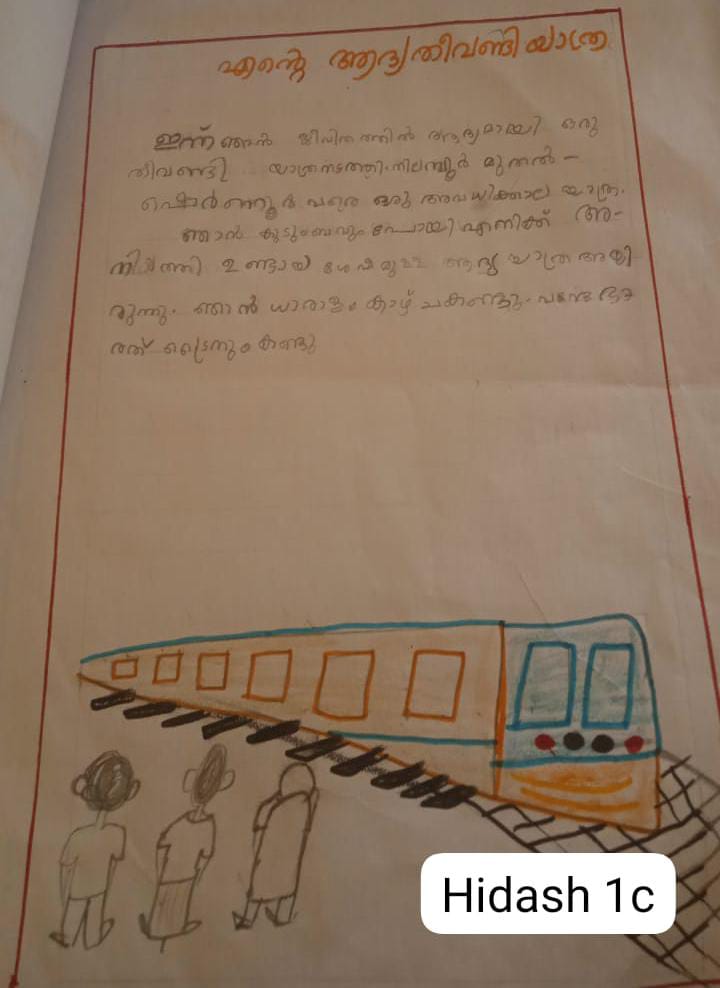 എന്റെ ആദ്യതീവണ്ടിയാത്ര
ഇന്ന് ഞാൻ ജീവിതത്തിൽ ആദ്യമായി ഒരു
തീവണ്ടി യാത്രനടത്തി. നിലമ്പൂർ മുതൽ -
ഷൊർണ്ണൂർ വരെ ഒരു അവധിക്കാല യാത്ര.
ഞാൻ കുടുംബവും പോയി എനിക്ക് അ-
നിയത്തി ഉണ്ടായ ശേഷമുള്ള ആദ്യ യാത്ര അയി
രുന്നു. ഞാൻ ധാരാളം കാഴ്ചകണ്ടു. വന്ദേ ഭാ
രത് ട്രൈനും കണ്ടു
Hidash 1c